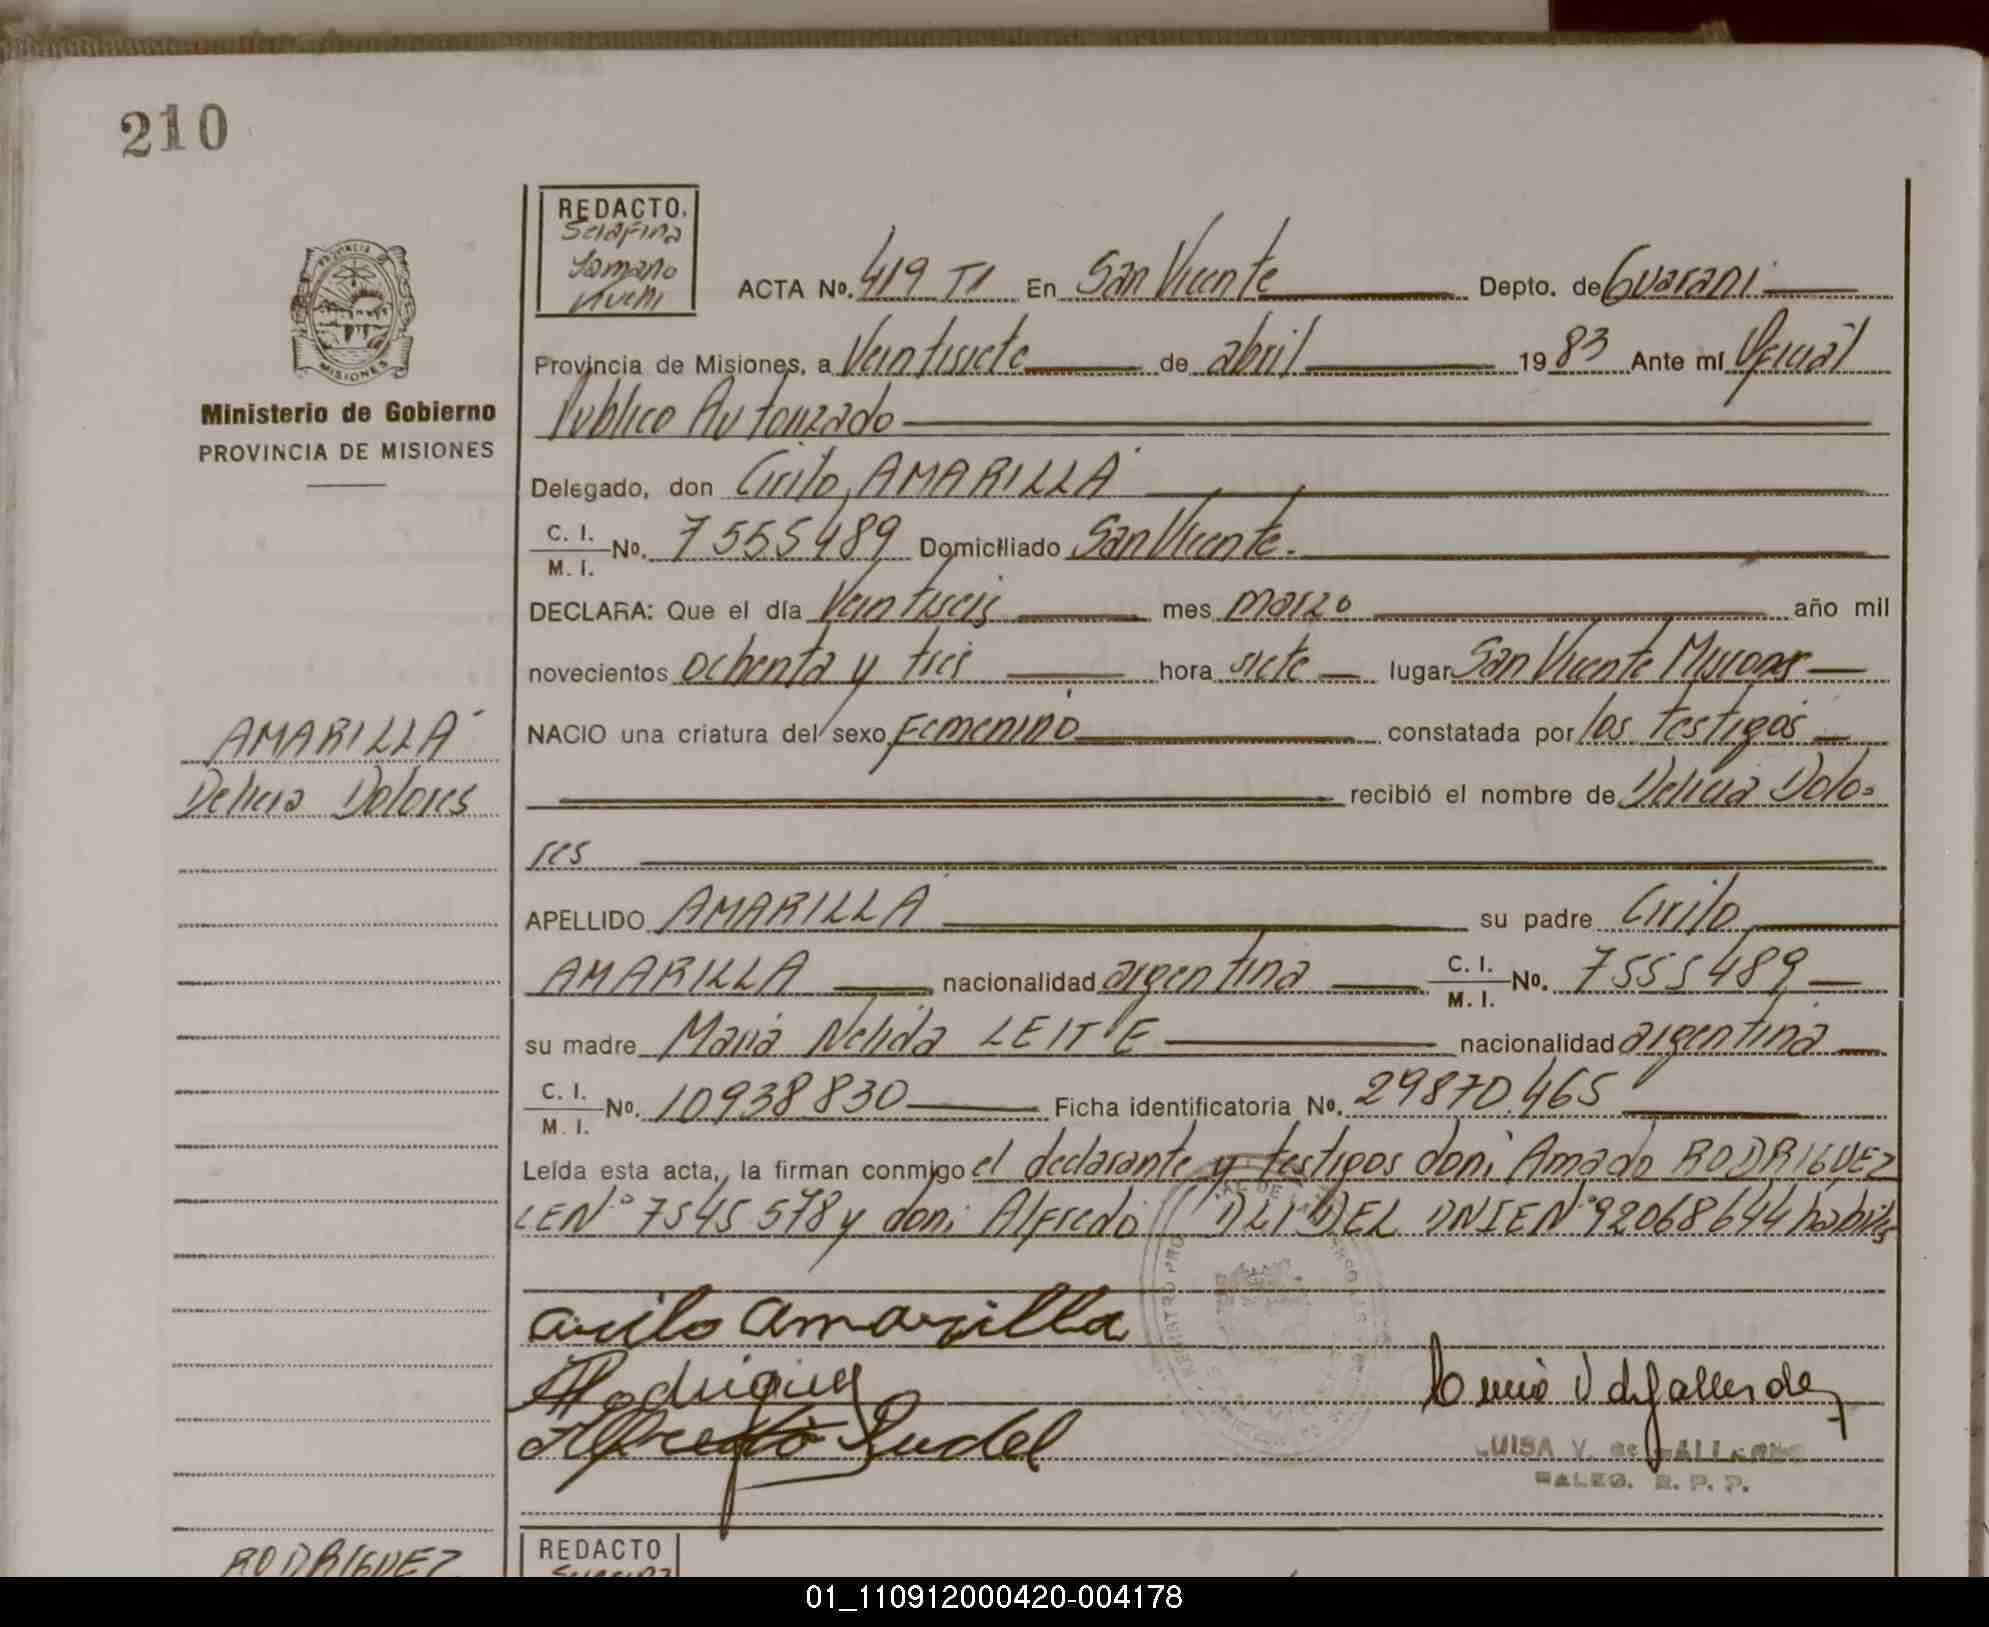 210
REDACTO.
Serafina
ACTA No. 419 T1 En San Vicente Depto. de Guarani
Provincia de Misiones, a Veintisiete de abril 1983 Ante mí Oficial
Publico Autorizado
Delegado, don Cirilo, AMARILLA
C. I.
M. I. No. 7555489 Domiciliado San Vicente.
DECLARA: Que el día Veintiseis mes marzo año mil
novecientos ochenta y tres hora siete lugar San Vicente Misiones
NACIO una criatura del sexo Femenino constatada por los testigos
recibió el nombre de Delicia Dolo-
res
APELLIDO AMARILLA su padre Cirilo
AMARILLA nacionalidad argentina C. I.
M. I. No. 7555489
su madre Maria Nelida LEITE nacionalidad argentina
C. I.
M. I. No. 10938830 Ficha identificatoria No. 29870.465
Leída esta acta, la firman conmigo el declarante y testigos don: Amado RODRIGUEZ
LEN° 7545578 y don: Alfredo DNIEN°92068644 hábiles
Cirilo Amarilla
ARodriguez
Alfredo
LUISA V. de GALLARDO
R. P. P.
PROVINCIA
MISIONES
Ministerio de Gobierno
PROVINCIA DE MISIONES
AMARILLA
Delicia Dolores
RODRIGUEZ
REDACTO
01_110912000420-004178